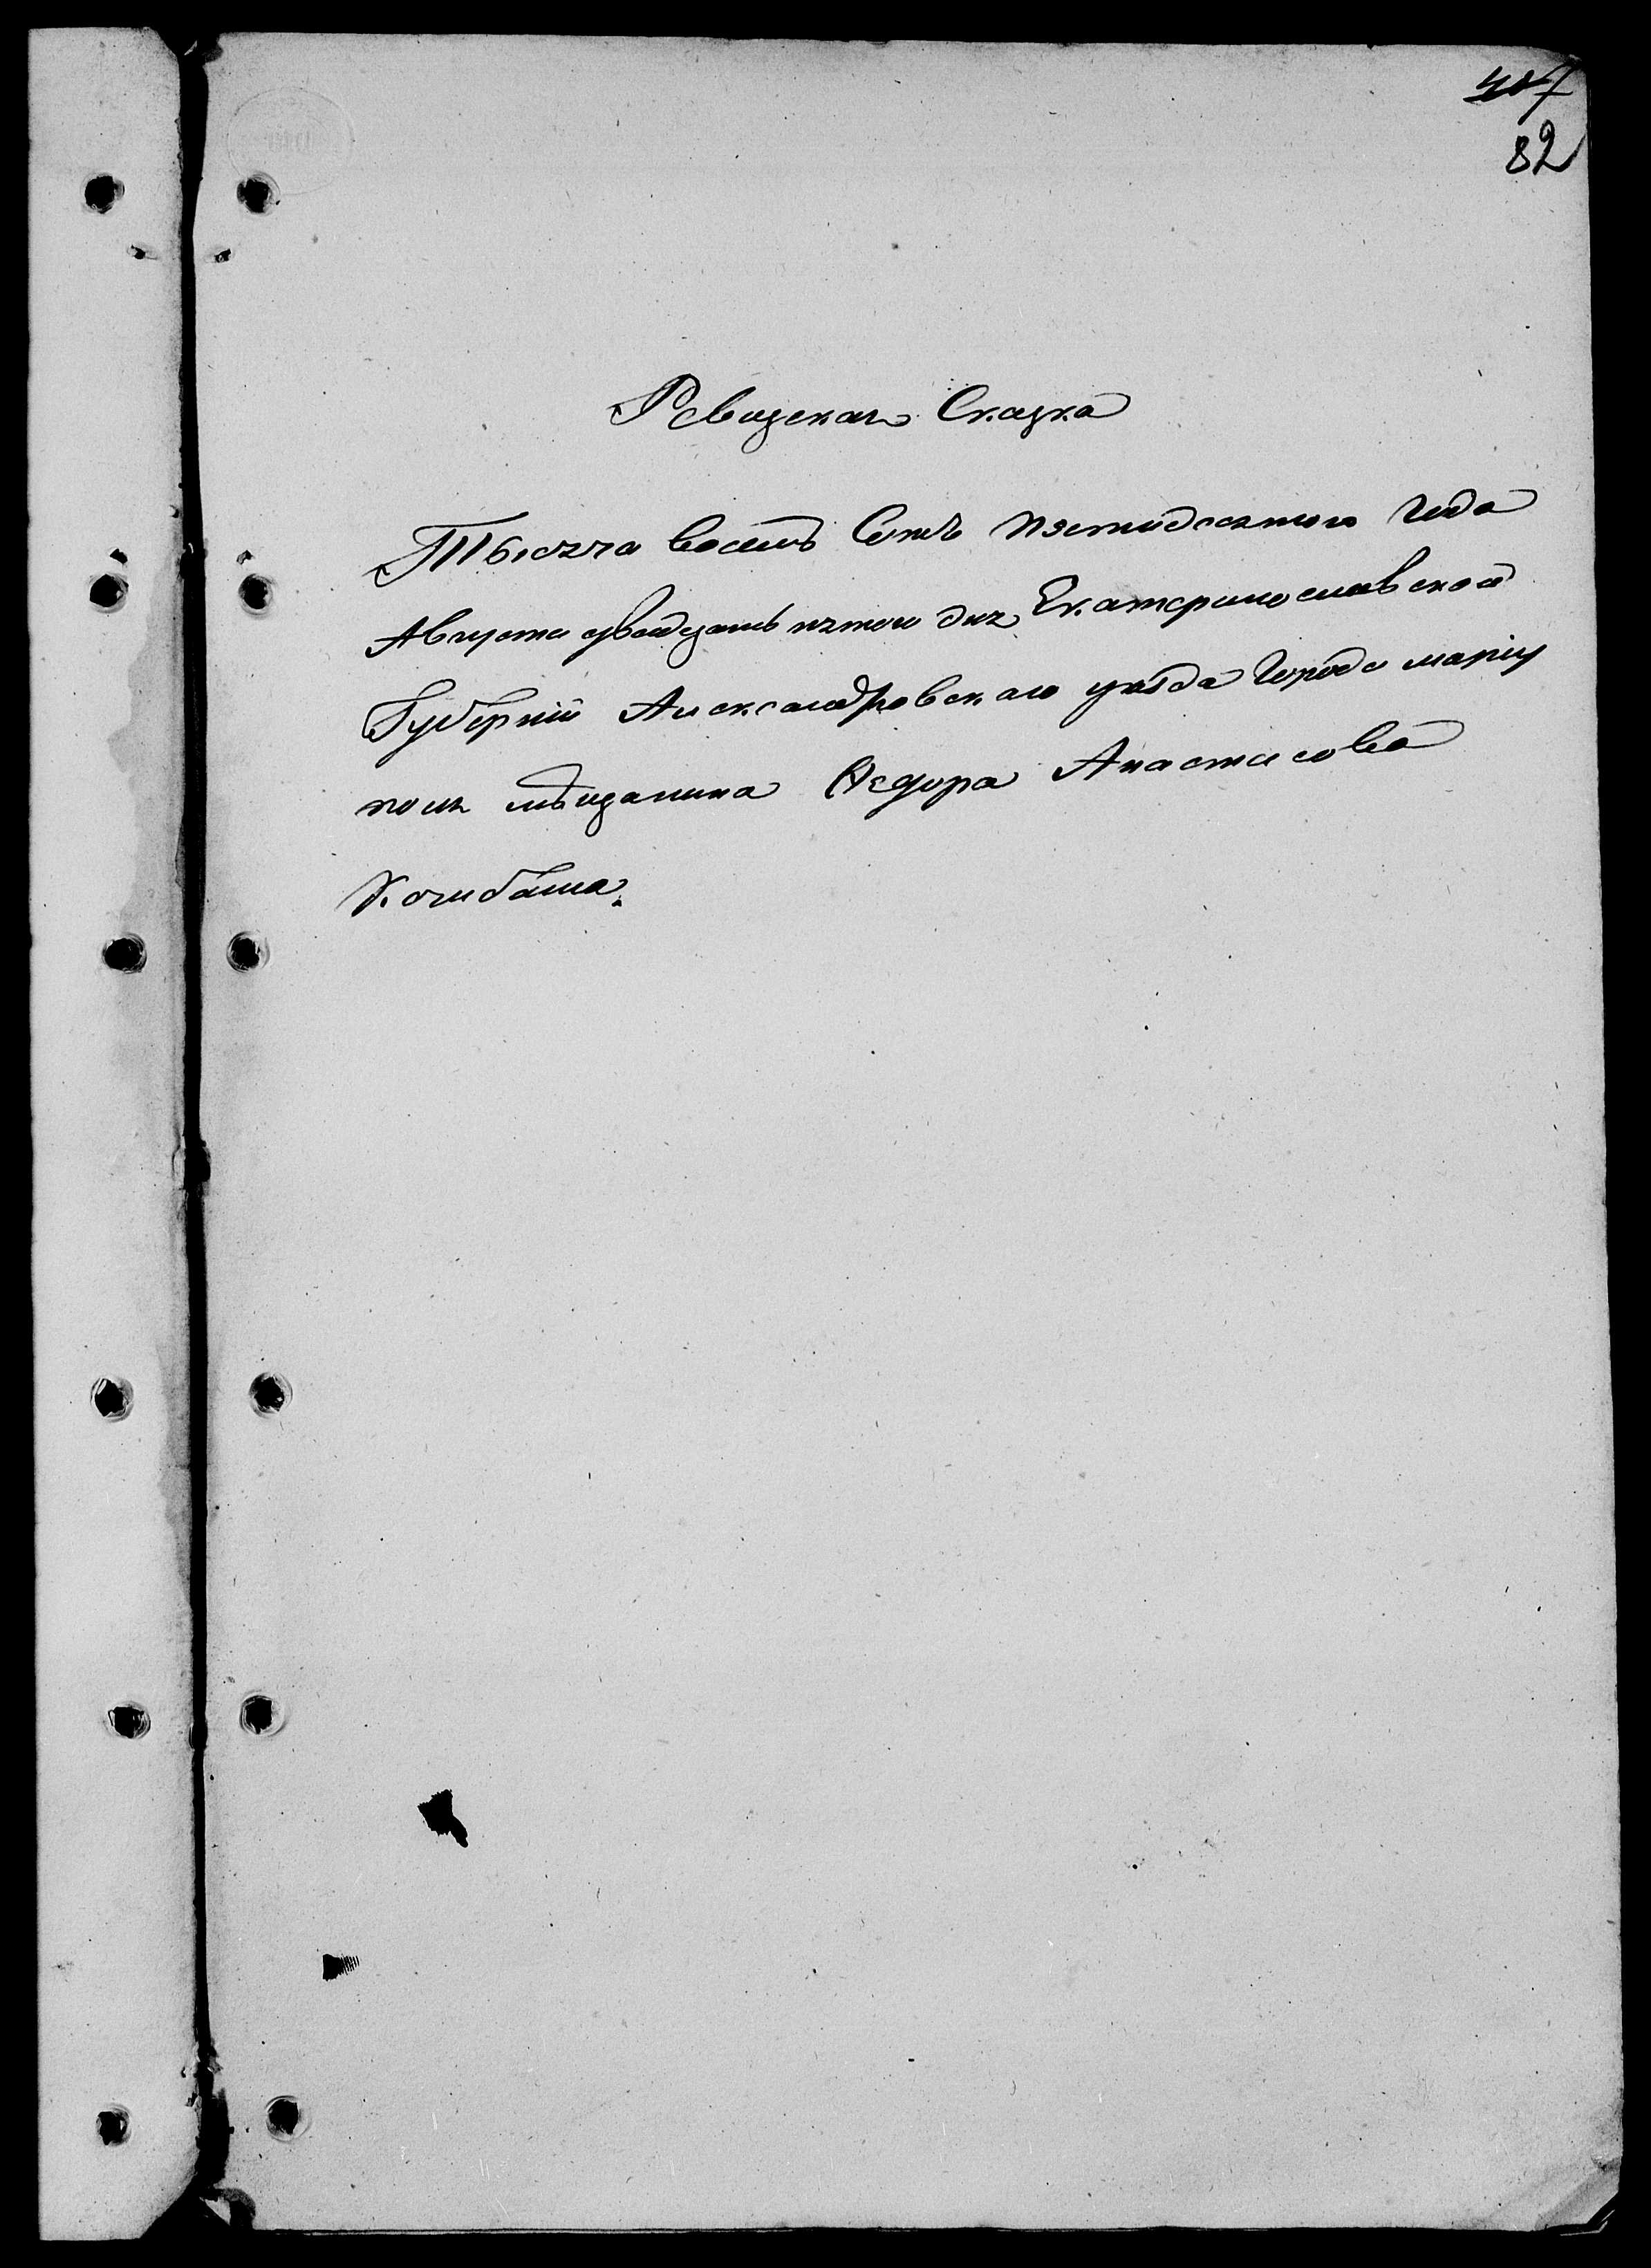 407
82
Ревизская Сказка
Тысяча восемь Сотъ Пятидесятого Года
Августа двадцать пятого дня Екатеринославской
Губерніи Александровского уѣзда Города маріу
поля мѣщанина Ѳедора Анастасова
Хаджибаша.